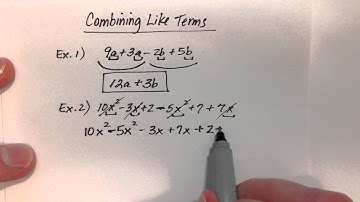 Combining Like Terms
Ex. 1) 9a + 3a - 2b + 5b
12a + 3b
Ex. 2) 10x² - 3x + 2 - 5x² + 7 + 7x
10x² - 5x² - 3x + 7x + 2 +